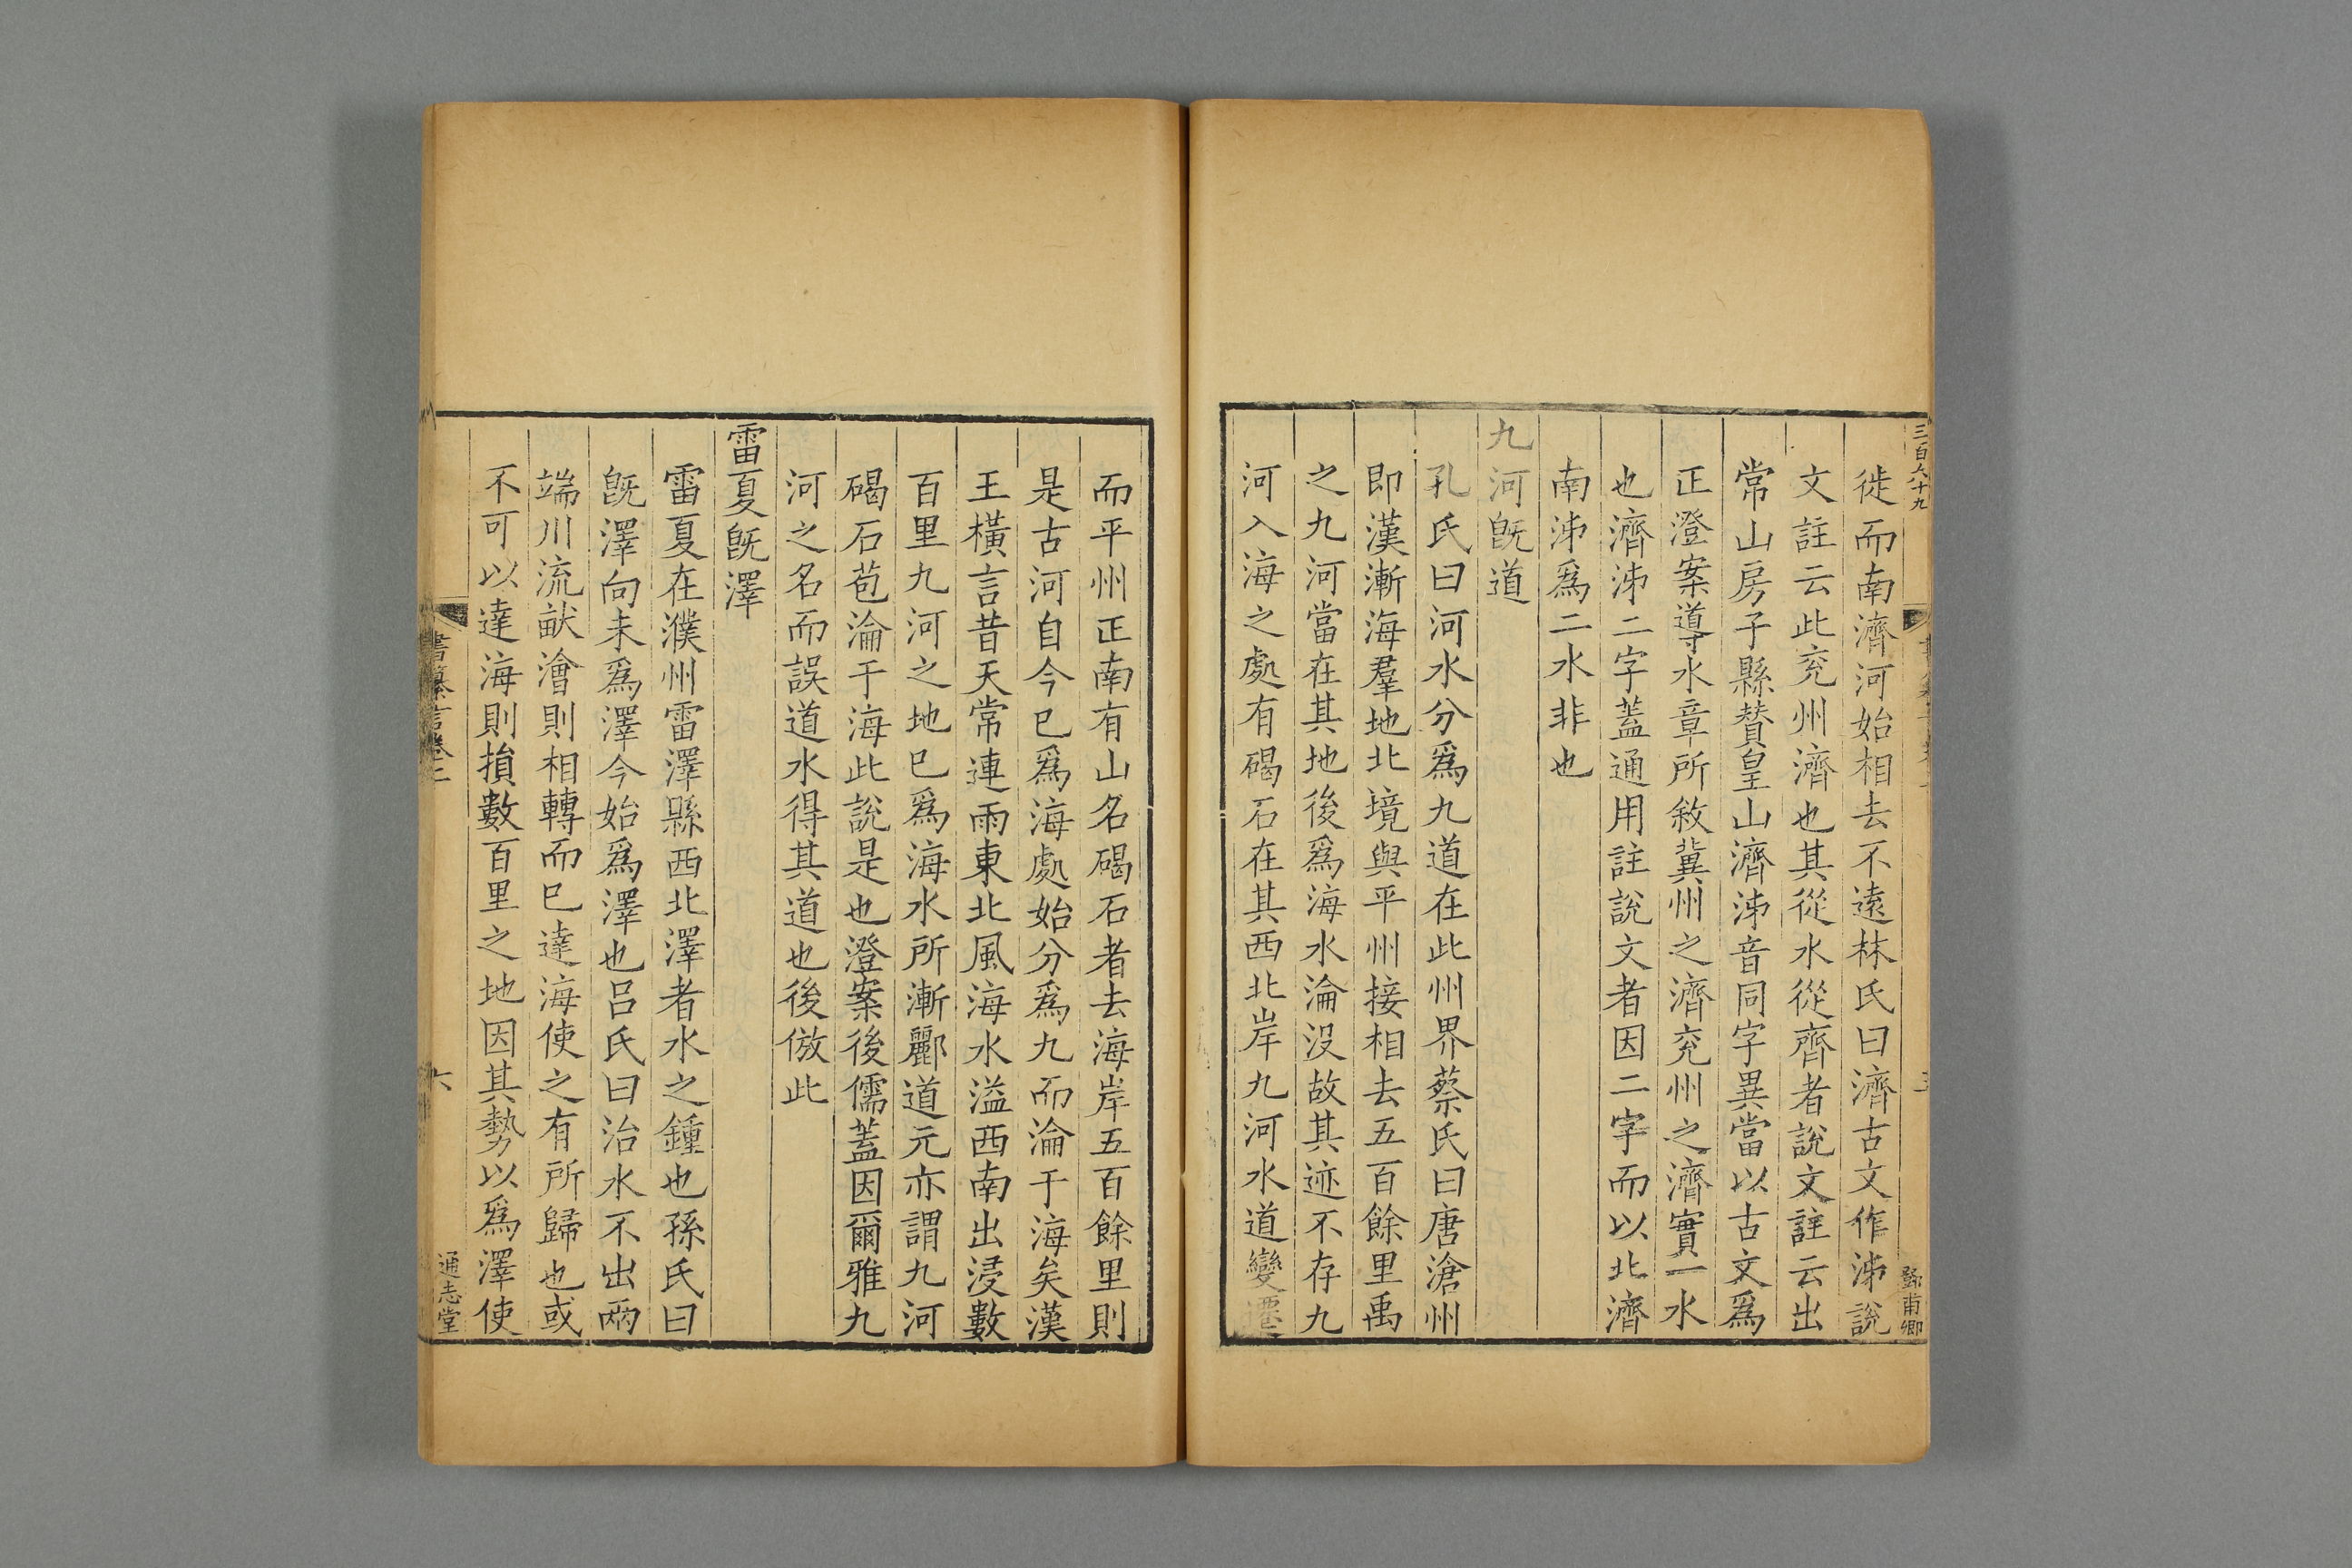 三百八十九
鄧甫卿
徙而南濟河始相去不遠林氏曰濟古文作泲說
文註云此兖州濟也其從水從齊者說文註云出
常山房子縣贊皇山濟泲音同字異當以古文爲
正澄案導水章所敘冀州之濟兖州之濟實一水
也濟泲二字蓋通用註說文者因二字而以北濟
南泲爲二水非也
九河旣道
孔氏曰河水分爲九道在此州界蔡氏曰唐滄州
即漢漸海羣地北境與平州接相去五百餘里禹
之九河當在其地後爲海水淪没故其迹不存九
河入海之處有碣石在其西北岸九河水道變遷
而平州正南有山名碣石者去海岸五百餘里則
是古河自今已爲海處始分爲九而淪于海矣漢
王橫言昔天常連雨東北風海水溢西南出浸數
百里九河之地已爲海水所漸酈道元亦謂九河
碣石苞淪于海此說是也澄案後儒蓋因爾雅九
河之名而誤道水得其道也後倣此
雷夏旣澤
雷夏在濮州雷澤縣西北澤者水之鍾也孫氏曰
旣澤向未爲澤今始爲澤也呂氏曰治水不出兩
端川流畎澮則相轉而已達海使之有所歸也或
不可以達海則損數百里之地因其勢以爲澤使
書纂言卷二
六
通志堂